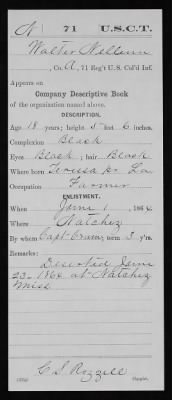 N 71 U.S.C.T.
Walter Nelson
, Co. A, 71 Reg't U.S. Col'd Inf.
Appears on
Company Descriptive Book
of the organization named above.
DESCRIPTION.
Age 18 years; height 5 feet 6 inches.
Complexion Black
Eyes Black; hair Black
Where born La
Occupation Farmer
ENLISTMENT.
When 1, 1864.
Where Natchez
By whom Capt. ; term 3 y'rs.
Remarks:
Deserted
23 1864 at Natchez
Miss
C S Rozzell
Copyist.